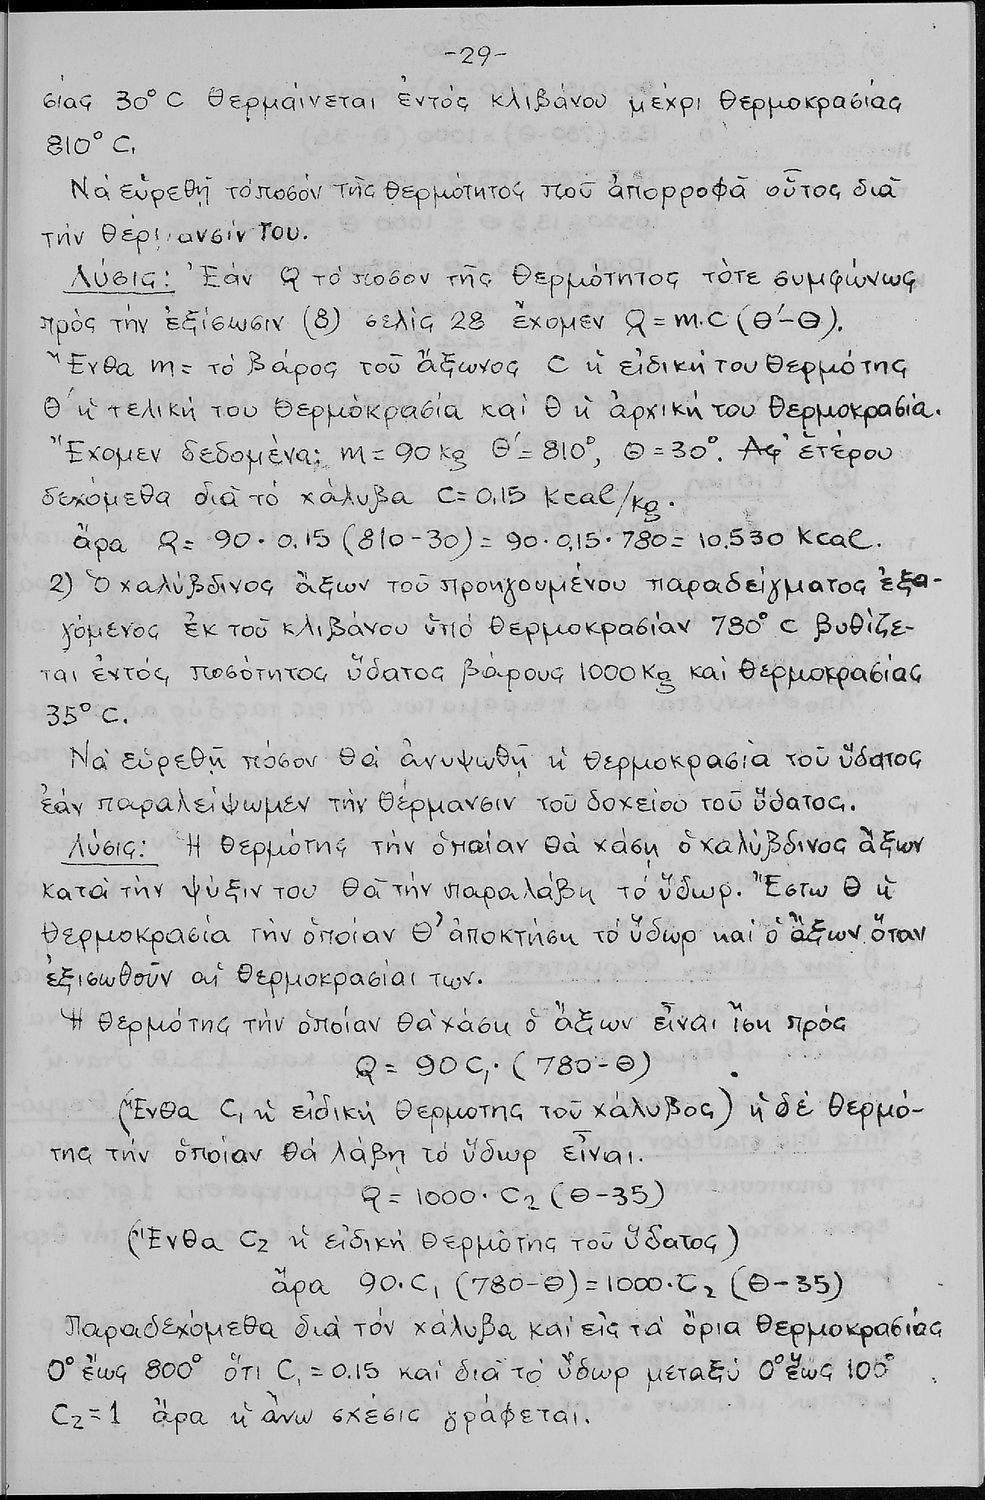 -29-
σίας 30° C θερμαίνεται ἐντός κλιβάνου μέχρι θερμοκρασίας
810° C.
Νά εὑρεθῇ τό ποσόν τῆς θερμότητος πού ἀπορροφᾶ οὗτος διά
τήν θέρμανσίν του.
Λύσις: Ἐάν Q τό ποσον τῆς θερμότητος τότε συμφώνως
πρός τήν ἐξίσωσιν (8) σελίς 28 ἔχομεν Q = m.C (Θ′-Θ).
Ἔνθα m = τό βάρος τοῦ ἄξωνος C ἡ εἰδική του θερμότης
Θ′ ἡ τελική του θερμόκρασία καί Θ ἡ ἀρχική του θερμοκρασία.
Ἔχομεν δεδομένα: m = 90 kg Θ′ = 810°, Θ = 30°. Ἀφ' ἑτέρου
δεχόμεθα διά τό χάλυβα C = 0,15 kcal/kg.
ἄρα Q = 90 · 0,15 (810 - 30) = 90 · 0,15 · 780 = 10,530 kcal.
2) Ὁ χαλύβδινος ἄξων τοῦ προηγουμένου παραδείγματος ἐξα-
γόμενος ἐκ τοῦ κλιβάνου ὑπό θερμοκρασίαν 780° C βυθίζε-
ται ἐντός ποσότητος ὕδατος βάρους 1000 Kg καί θερμοκρασίας
35° C.
Νά εὑρεθῇ πόσον θά ἀνυψωθῇ ἡ θερμοκρασία τοῦ ὕδατος
ἐάν παραλείψωμεν τήν θέρμανσιν τοῦ δοχείου τοῦ ὕδατος.
Λύσις: Ἡ θερμότης τήν ὁποίαν θά χάσῃ ὁ χαλύβδινος ἄξων
κατά τήν ψύξιν του θά τήν παραλάβῃ τό ὕδωρ. Ἔστω Θ ἡ
θερμοκρασία τήν ὁποίαν Θ' ἀποκτήσῃ τό ὕδωρ καί ὁ ἄξων ὅταν
ἐξισωθοῦν αἱ θερμοκρασίαι των.
Ἡ θερμότης τήν ὁποίαν θά χάσῃ ὁ ἄξων εἶναι ἴση πρός
Q = 90 C₁ · (780 - Θ)
(Ἔνθα C₁ ἡ εἰδική θερμοτης τοῦ χάλυβος) ἡ δέ θερμό-
της τήν ὁποίαν θά λάβῃ τό ὕδωρ εἶναι.
Q = 1000 · C₂ (Θ - 35)
(Ἔνθα C₂ ἡ εἰδική θερμότης τοῦ ὕδατος)
ἄρα 90 · C₁ (780 - Θ) = 1000 · C₂ (Θ - 35)
Παραδεχόμεθα διά τόν χάλυβα καί εἰς τά ὅρια θερμοκρασίας
0° ἕως 800° ὅτι C₁ = 0.15 καί διά τό ὕδωρ μεταξύ 0° ἕως 100°
C₂ = 1 ἄρα ἡ ἄνω σχέσις γράφεται.